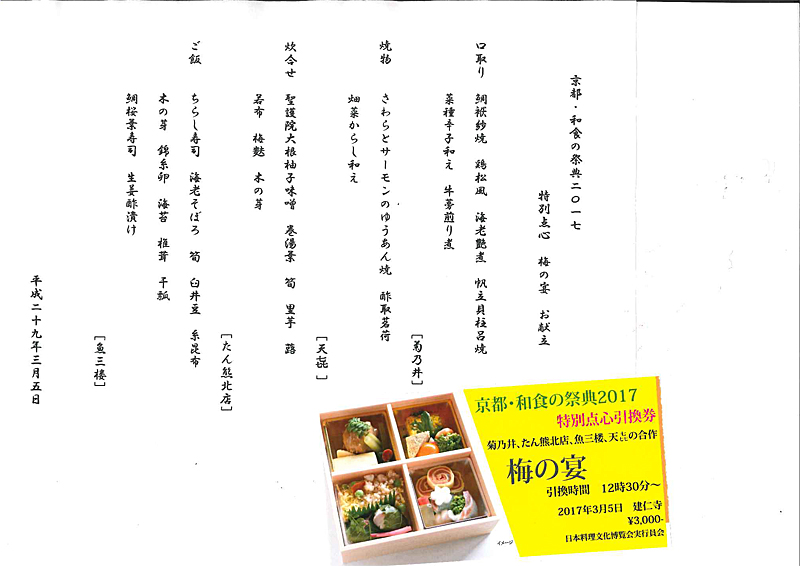 京都・和食の祭典二〇一七
特別点心　梅の宴　お献立
口取り　鯛袱紗焼　鶏松風　海老艶煮　帆立貝柱呂焼
菜種辛子和え　牛蒡煎り煮
［菊乃井］
焼物　さわらとサーモンのゆうあん焼　酢取茗荷
畑菜からし和え
［天㐂］
炊合せ　聖護院大根柚子味噌　巻湯葉　筍　里芋　蕗
若布　梅麩　木の芽
［たん熊北店］
ご飯　ちらし寿司　海老そぼろ　筍　臼井豆　糸昆布
木の芽　錦糸卵　海苔　椎茸　干瓢
鯛桜葉寿司　生姜酢漬け
［魚三楼］
平成二十九年三月五日
京都・和食の祭典2017
特別点心引換券
菊乃井、たん熊北店、魚三楼、天㐂の合作
梅の宴
引換時間　12時30分～
2017年3月5日　建仁寺
¥3,000-
日本料理文化博覧会実行員会
イメージ